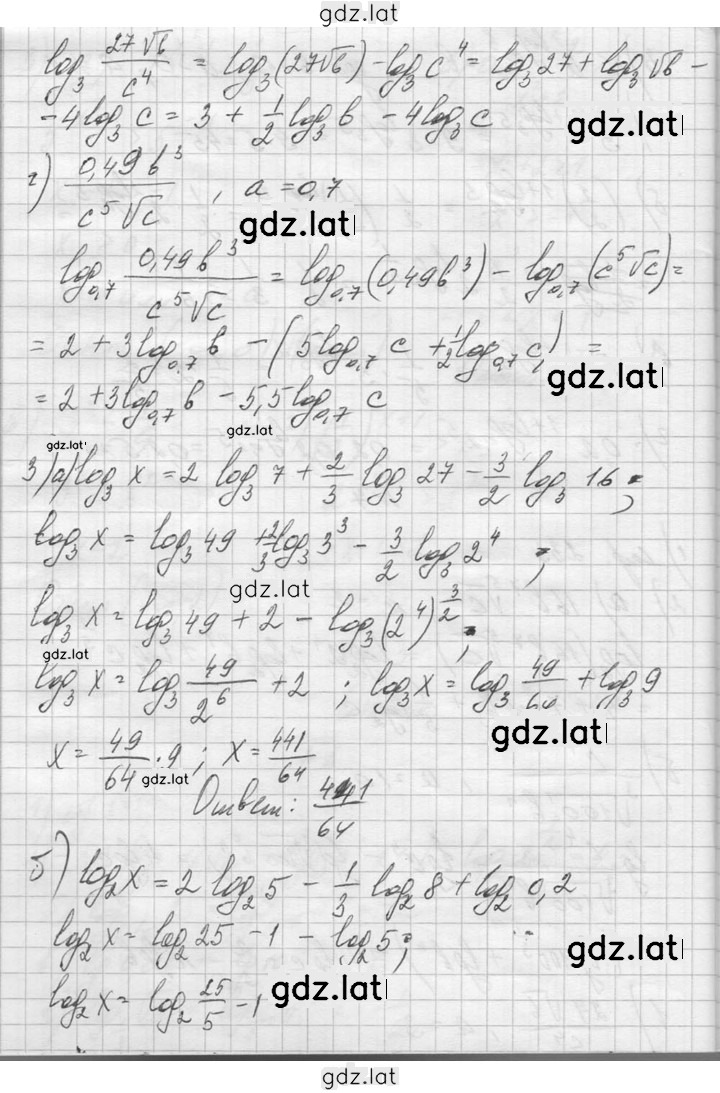 gdz.lat
log₃ 27√b/c⁴ = log₃(27√b) - log₃c⁴ = log₃27 + log₃√b -
- 4log₃c = 3 + 1/2 log₃b - 4log₃c
gdz.lat
г) 0,49b³/c⁵√c , a = 0,7
gdz.lat
log₀,₇ 0,49b³/c⁵√c = log₀,₇(0,49b³) - log₀,₇(c⁵√c) =
= 2 + 3log₀,₇b - (5log₀,₇c + 1/2 log₀,₇c) =
gdz.lat
= 2 + 3log₀,₇b - 5,5log₀,₇c
gdz.lat
gdz.lat
3)a) log₃x = 2log₃7 + 2/3 log₃27 - 3/2 log₃16;
log₃x = log₃49 + 2/3 log₃3³ - 3/2 log₃2⁴;
gdz.lat
log₃x = log₃49 + 2 - log₃(2⁴)^3/2;
gdz.lat
log₃x = log₃ 49/2⁶ + 2; log₃x = log₃ 49/64 + log₃9
gdz.lat
x = 49/64 · 9; x = 441/64
gdz.lat
Ответ: 441/64
б) log₂x = 2log₂5 - 1/3 log₂8 + log₂0,2
log₂x = log₂25 - 1 - log₂5;
gdz.lat
log₂x = log₂ 25/5 - 1
gdz.lat
gdz.lat